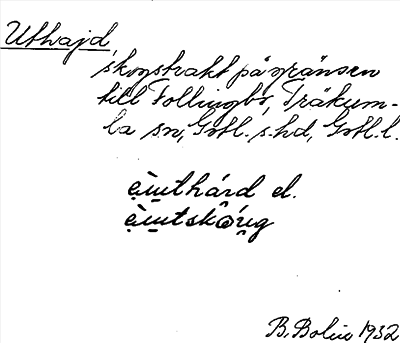 Uthajd,
skogstrakt på gränsen
till Follingbo, Träkum-
la sn, Gotl. s. hd, Gotl. l.
el.
B. Bolin 1932